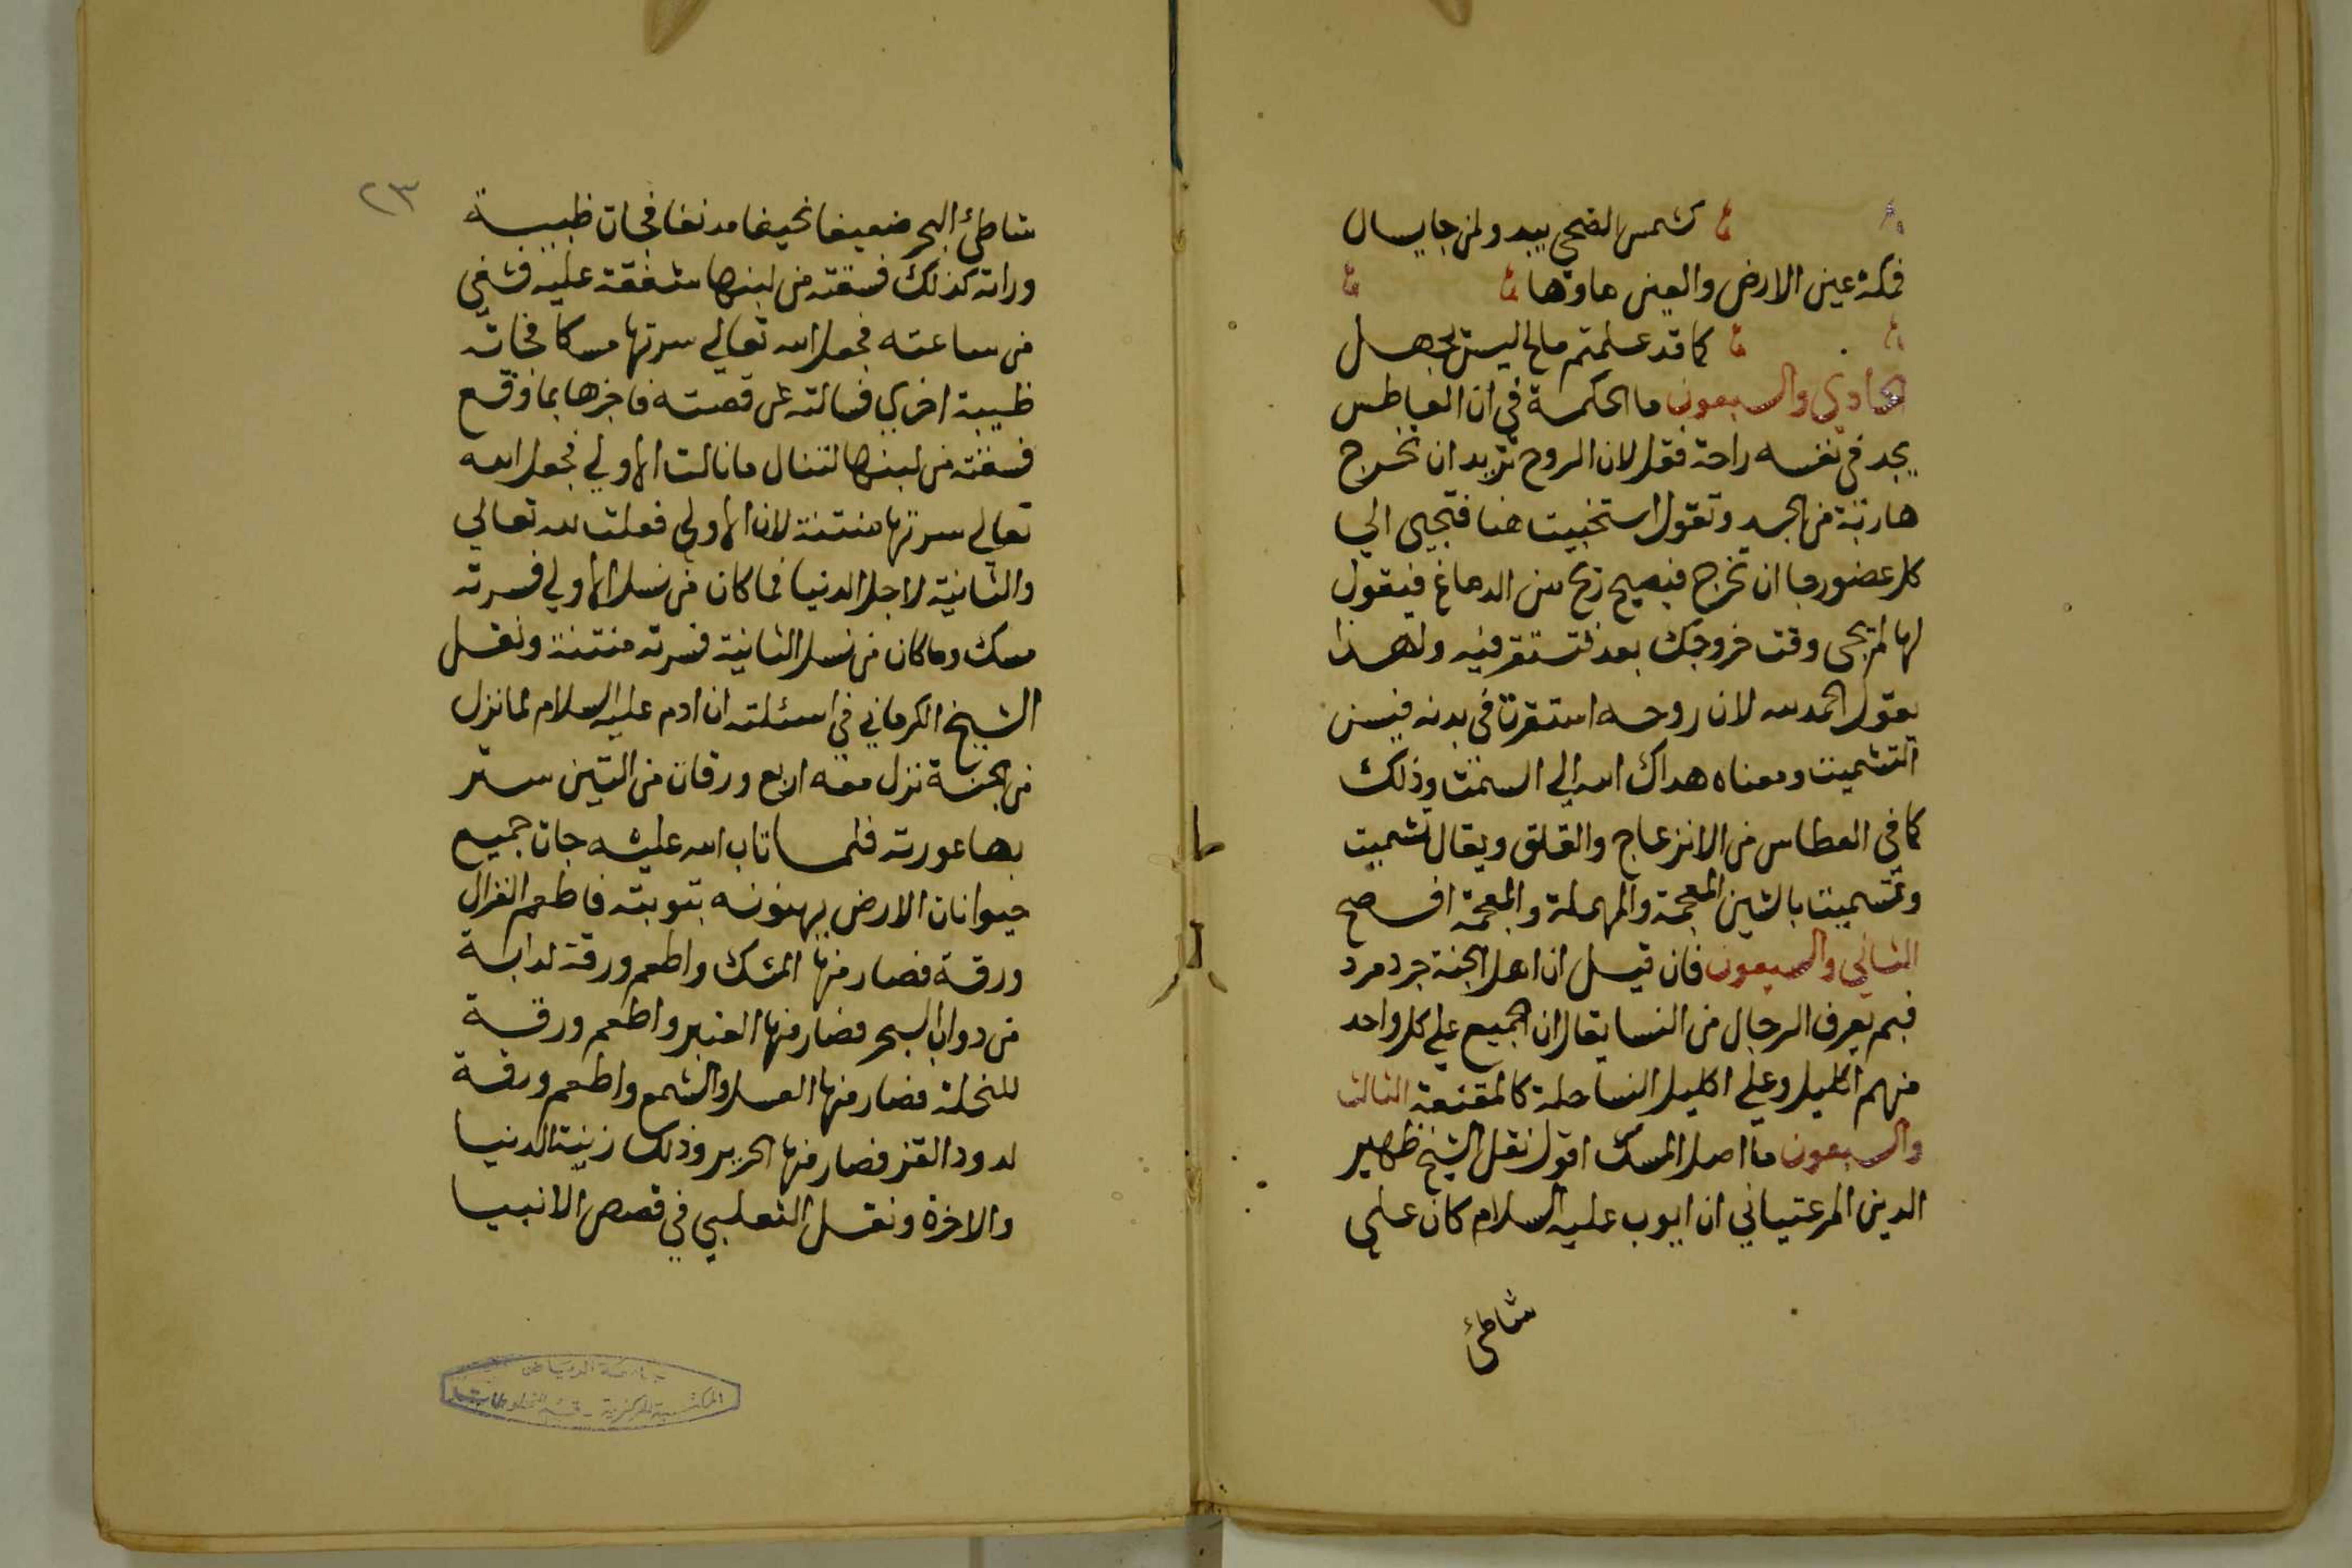 كشمس الضحى يبدو لمن جا يسال
فمكة عين الارض والعين ماوها
كما قد علمتم مالح ليس يجهل
الحادي والسبعون ما الحكمة في ان العاطس
يجد في نفسه راحة فقل لان الروح تريد ان تخرج
هاربة من الجسد وتقول استخبيت هنا فتجي الي
كل عضو رجا ان تخرج فيصيح ريح من الدماغ فيقول
لها لم يجى وقت خروجك بعد فتستقر فيه ولهذا
يقول الحمد لله لان روحه استقرت في بدنه فيسن
التشميت ومعناه هداك الله الي السمت وذلك
كما في العطاس من الانزعاج والقلق ويقال تشميت
وتسميت بالشين المعجمة والمهملة والمعجمة افصح
الثاني والسبعون فان قيل ان اهل الجنة جرد مرد
فبم يعرف الرجال من النسا يقال ان الجميع علي كل واحد
منهم اكليل وعلي اكليل النسا حلة كالمقنعة الثالث
والسبعون ما اصل المسك اقول نقل الشيخ ظهير
الدين المرغتياني ان ايوب عليه السلام كان علي
شاطئ
٢٣
شاطئ البحر ضعيفا نحيفا مدنفا فجات ظبية
وراته كذلك فسقته من لبنها شفقة عليه فشفي
من ساعته فجعل الله تعالي سرتها مسكا فجاته
ظبية اخري فسالته عن قصته فاخبرها بما وقع
فسقته من لبنها لتنال ما نالت الاولي فجعل الله
تعالي سرتها منتنة لان الاولي فعلت لله تعالي
والثانية لاجل الدنيا فما كان من نسل الاولي فسرته
مسك وما كان من نسل الثانية فسرته منتنة ونقل
الشيخ الكرماني في اسئلته ان ادم عليه السلام لما نزل
من الجنة نزل معه اربع ورقات من التين ستر
بها عورته فلما تاب الله عليه جات جميع
حيوانات الارض يهنونه بتوبته فاطعم الغزال
ورقة فصار منها المسك واطعم ورقة لدابة
من دواب البحر فصار منها العنبر واطعم ورقة
للنحلة فصار منها العسل والشمع واطعم ورقة
لدود القز فصار منها الحرير وذلك زينة الدنيا
والاخرة ونقل الثعلبي في قصص الانبيا
جامعة الرياض
المكتبة المركزية - قسم المخطوطات